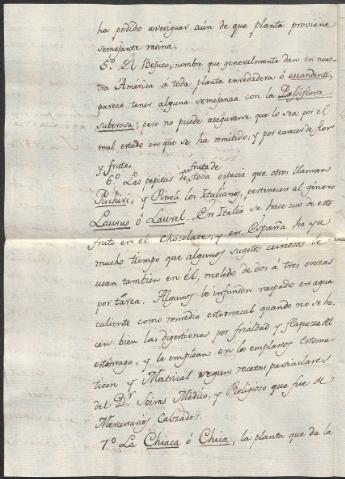 ha podido averiguar aún de que planta proviene
semejante resina.
5.º El Bejuco, nombre que generalmente dan en nues-
tra América a toda planta enredadera ó escandente,
parece tener alguna semejanza con la Passiflora
suberosa; pero no puede asegurarse que lo sea por el
mal estado en que se ha remitido, y por carecer de flor
y fruto.
6.º Las pepitas de toda especia que otros llaman
fruta de
Puchuri, y Pinoli los Italianos, pertenecen al género
Laurus ó Laurel. En Italia se hace uso de este
fruto en el Chocolate, y en España ha ya
mucho tiempo que algunos sugetos curiosos le
usan tambien en él, molido de dos á tres
por tarea. Algunos le infunden raspado en agua
caliente como remedio estomacal quando no se ha-
cen bien las digestiones por frialdad y flaqueza del
estómago, y le emplean en los emplastos Estoma-
ticon y Matrical segun recetas particulares
del D.r Medico, y Religioso que fue de
Mercenarios Calzados.
7.º La Chiaca ó Chica, la planta que da la